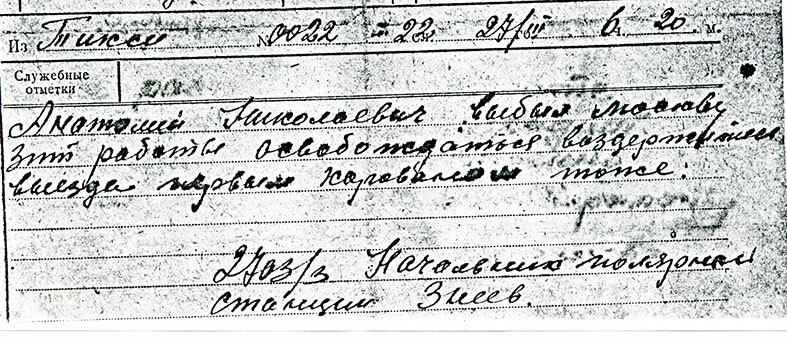 Из Тикси № 0022 22 27/III 6 ч. 20 м.
Служебные
отметки
Анатолий Николаевич выбыл москву
зпт работы освобождаться воздержитесь
выезда первым караваном тоже.
270з/з Начальник полярной
станции Знеев.